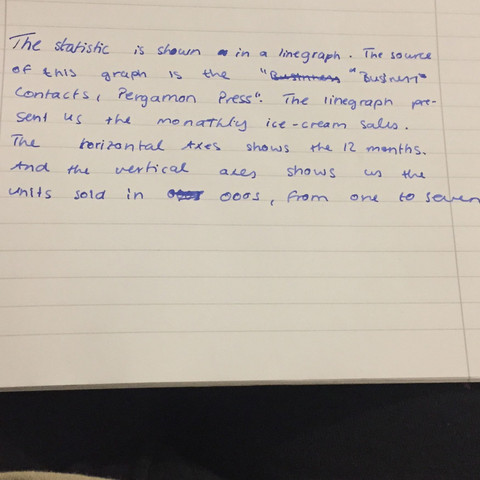 The statistic is shown in a linegraph. The source
of this graph is the "Business
Contacts, Pergamon Press". The linegraph pre-
sent us the monathly ice-cream sales.
The horizontal Axes shows the 12 months.
And the vertical axes shows us the
units sold in 000s, from one to seven